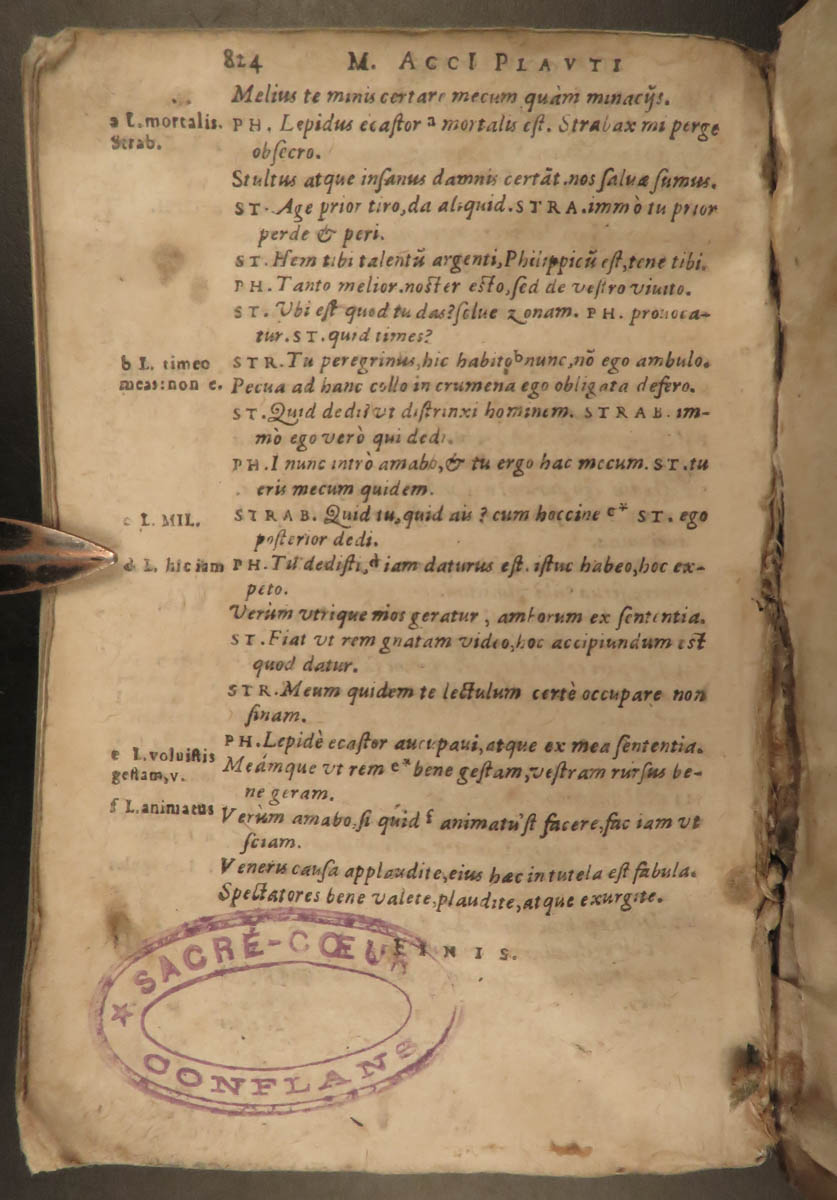 824 M. ACCI PLAVTI
Melius te minis certare mecum quàm minacijs.
a L. mortalis. Strab.
PH. Lepidus ecastor ᵃ mortalis est. Strabax mi perge
obsecro.
Stultus atque insanus damnis certāt. nos saluæ sumus.
ST. Age prior tiro, da aliquid. STRA. immò tu prior
perde & peri.
ST. Hem tibi talentū argenti, Philippicū est, tene tibi.
PH. Tanto melior. noster esto, sed de vestro viuito.
ST. Vbi est quod tu das? solue zonam. PH. prouoca-
tur. ST. quid times?
b L. timeo meas: non e.
STR. Tu peregrinus, hic habito ᵇ nunc, nō ego ambulo.
Pecua ad hanc collo in crumena ego obligata defero.
ST. Quid dedi? vt distrinxi hominem. STRAB. im-
mò ego verò qui dedi.
PH. I nunc intrò amabo, & tu ergo hac mecum. ST. tu
eris mecum quidem.
c L. MIL.
STRAB. Quid tu, quid ais? cum hoccine ᶜ* ST. ego
posterior dedi.
d L. hic iam
PH. Tu dedisti, ᵈ iam daturus est. istuc habeo, hoc ex-
peto.
Verùm vtrique mos geratur, amborum ex sententia.
ST. Fiat vt rem gnatam video, hoc accipiundum est
quod datur.
STR. Meum quidem te lectulum certè occupare non
sinam.
PH. Lepidè ecastor aucupaui, atque ex mea sententia.
e L. voluistis gestam, v.
Meámque vt rem ᵉ* bene gestam, vestram rursus be-
ne geram.
f L. animatus
Verùm amabo, si quid ᶠ animatu'st facere, fac iam vt
sciam.
Veneris causa applaudite, eius hæc in tutela est fabula.
Spectatores bene valete, plaudite, atque exurgite.
FINIS.
SACRÉ-CŒUR
CONFLANS